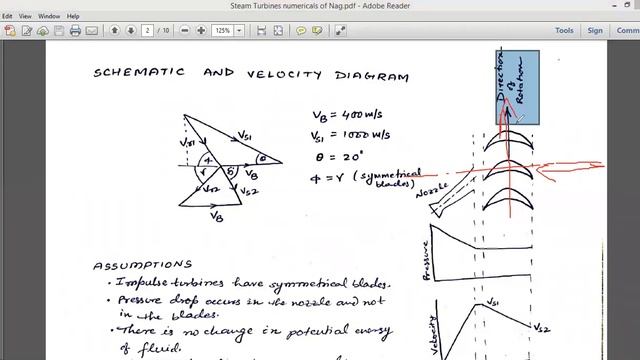 Steam Turbines numericals of Nag.pdf - Adobe Reader
File Edit View Window Help
2 / 10
125%
Tools
Sign
Comment
SCHEMATIC AND VELOCITY DIAGRAM
Direction
of
Rotation
VB = 400 m/s
VS1 = 1000 m/s
θ = 20°
φ = γ (symmetrical
blades)
Vr1
VS1
φ
θ
γ
δ
VB
Vr2
VS2
VB
Nozzle
Pressure
Velocity
VS1
VS2
ASSUMPTIONS
• Impulse turbines have symmetrical blades.
• Pressure drop occurs in the nozzle and not
in the blades.
• There is no change in potential energy
of fluid.